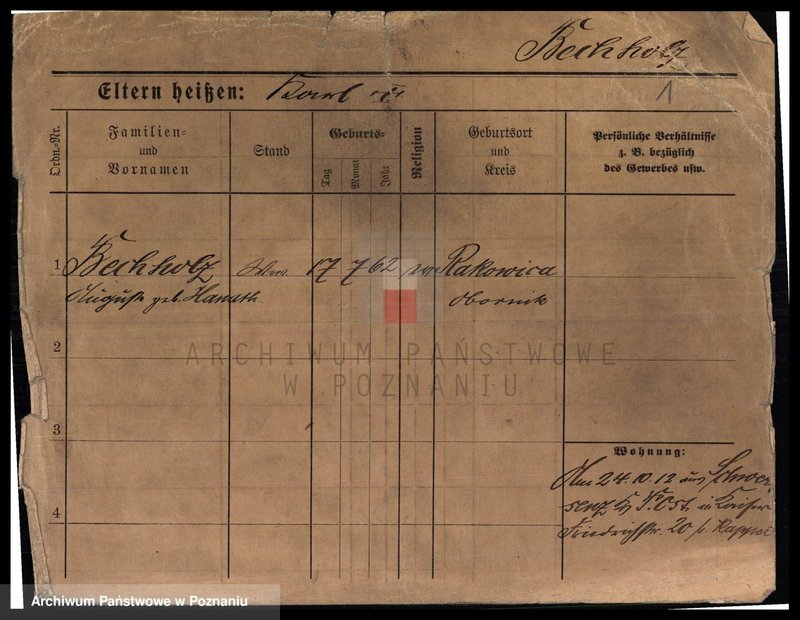 Bechholz
Eltern heißen: Karl u
1
Ordn.-Nr.
Familien- und Vornamen
Stand
Geburts-
Tag
Monat
Jahr
Religion
Geburtsort und Kreis
Persönliche Verhältnisse z. B. bezüglich des Gewerbes usw.
1 Bechholz 17 7 62 Rakowica
geb. Obornik
2
ARCHIWUM PAŃSTWOWE
W POZNANIU
3
Wohnung:
Am 24.10.12 aus
Ost. in Kaiser
Friedrichstr. 20 b. Kappel
4
Archiwum Państwowe w Poznaniu